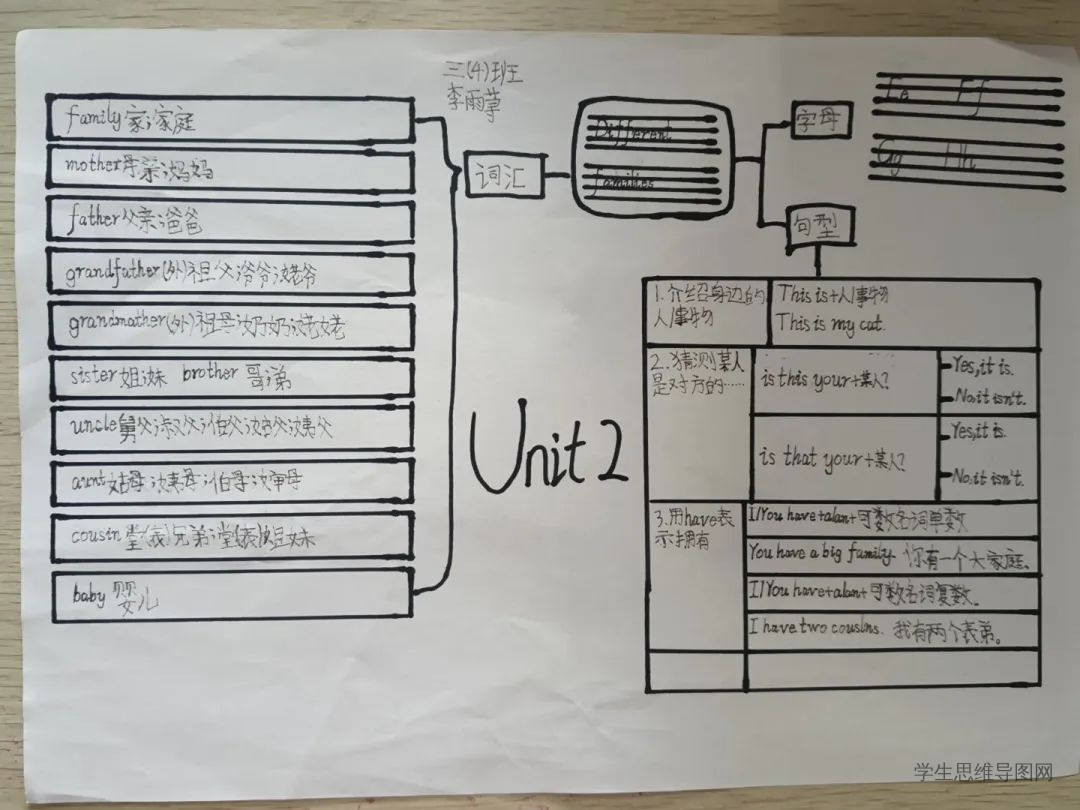 三(4)班
李雨
family家;家庭
mother母亲;妈妈
father父亲;爸爸
grandfather(外)祖父;爷爷;姥爷
grandmather(外)祖母;奶奶;姥姥
sister姐;妹 brother哥;弟
uncle舅父;叔父;伯父;姑父;姨父
aunt姑母;姨母;伯母;婶母
cousin堂(表)兄弟;堂(表)姐妹
baby婴儿
词汇
Different
families
字母
Ee Ff
Gg Hh
句型
Unit 2
1.介绍身边的
人/事物
This is+人/事物
This is my cat.
2.猜测某人
是对方的……
is this your+某人?
Yes,it is.
No,it isn't.
is that your+某人?
Yes,it is.
No,it isn't.
3.用have表
示拥有
I/You have+alan+可数名词单数
You have a big family 你有一个大家庭.
I/You have+alan+可数名词复数.
I have two cousins. 我有两个表弟。
学生思维导图网